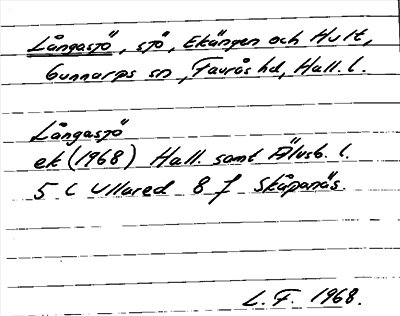 Långasjö, sjö, Ekängen och Hult,
Gunnarps sn, Faurås hd, Hall. l.
Långasjö
ek (1968) Hall. samt Älvsb. l.
5 C Ullared 8 f Skåpanäs.
L. F. 1968.